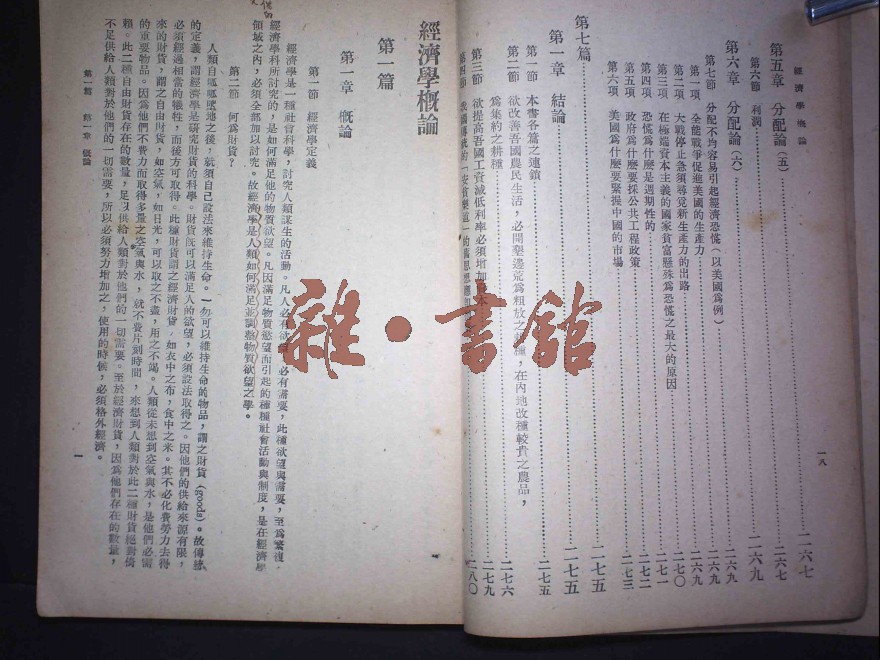 經濟學概論
一八
第五章 分配論(五)……二六七
第六節 利潤……二六七
第六章 分配論(六)……二六九
第七節 分配不均容易引起經濟恐慌(以美國為例)……二六九
第一項 全能戰爭促進美國的生產力……二六九
第二項 大戰停止急須尋覓新生產力的出路……二七〇
第三項 在極端資本主義的國家貧富懸殊為恐慌之最大的原因……二七一
第四項 恐慌為什麼是週期性的……二七二
第五項 政府為什麼要採公共工程政策……二七三
第六項 美國為什麼要緊握中國的市場
第七篇……二七五
第一章 結論……二七五
第一節 本書各篇之連鎖……二七五
第二節 欲改善吾國農民生活,必開墾邊荒為粗放之耕種,在內地改種較貴之農品,
為集約之耕種……二七六
第三節 欲提高吾國工資減低利率必須增加資本……二七九
第四節 我國傳統的「安貧樂道」的舊思想應……二八〇
經濟學概論
第一篇
第一章 概論
第一節 經濟學定義
經濟學是一種社會科學,討究人類謀生的活動。凡人必有欲望,必有需要,此種欲望與需要,至為繁複。
經濟學科所討究的,是如何滿足他的物質欲望。凡因滿足物質慾望而引起的種種社會活動與制度,是在經濟學
領域之內,必須全部加以討究。故經濟學是人類如何滿足並調整物質欲望之學。
第二節 何為財貨?
人類自呱呱墮地之後,就須自己設法來維持生命。一切可以維持生命的物品,謂之財貨(goods)。故傳統
的定義,謂經濟學是研究財貨的科學。財貨既可以滿足人的欲望,必須設法取得之。因他們的供給來源有限,
必須經過相當的犧牲,而後方可取得。此種財貨謂之經濟財貨,如衣中之布,食中之米。其不必化費勞力去得
來的財貨,謂之自由財貨,如空氣,如日光,可以取之不盡,用之不竭。人類從未想到空氣與水,是他們必需
的重要物品。因為他們不費力而取得多量之空氣與水,就不費片刻時間,來想到人類對於此二種財貨絕對倚
賴。此二種自由財貨存在的數量,足以供給人類對於他們的一切需要。至於經濟財貨,因為他們存在的數量,
不足供給人類對於他們的一切需要,所以必須努力增加之,使用的時候,必須格外經濟。
第一篇 第一章 概論
一
雜·書館